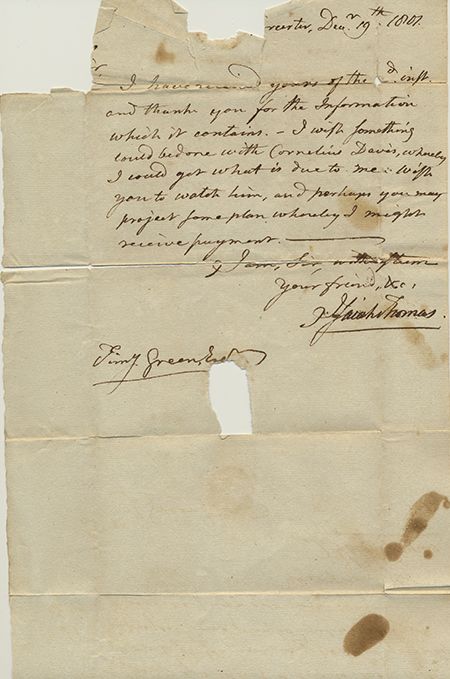 rcester, Decr. 19th. 1801.
I have received yours of the d. inst.
and thank you for the Information
which it contains. – I wish something
could be done with Cornelius Davis, whereby
I could get what is due to me. Wish
you to watch him, and perhaps you may
project some plan whereby I might
receive payment. ——
I am, Sir, with esteem
Your friend, &c,
Isaiah Thomas.
Timy. Green, Esqr.